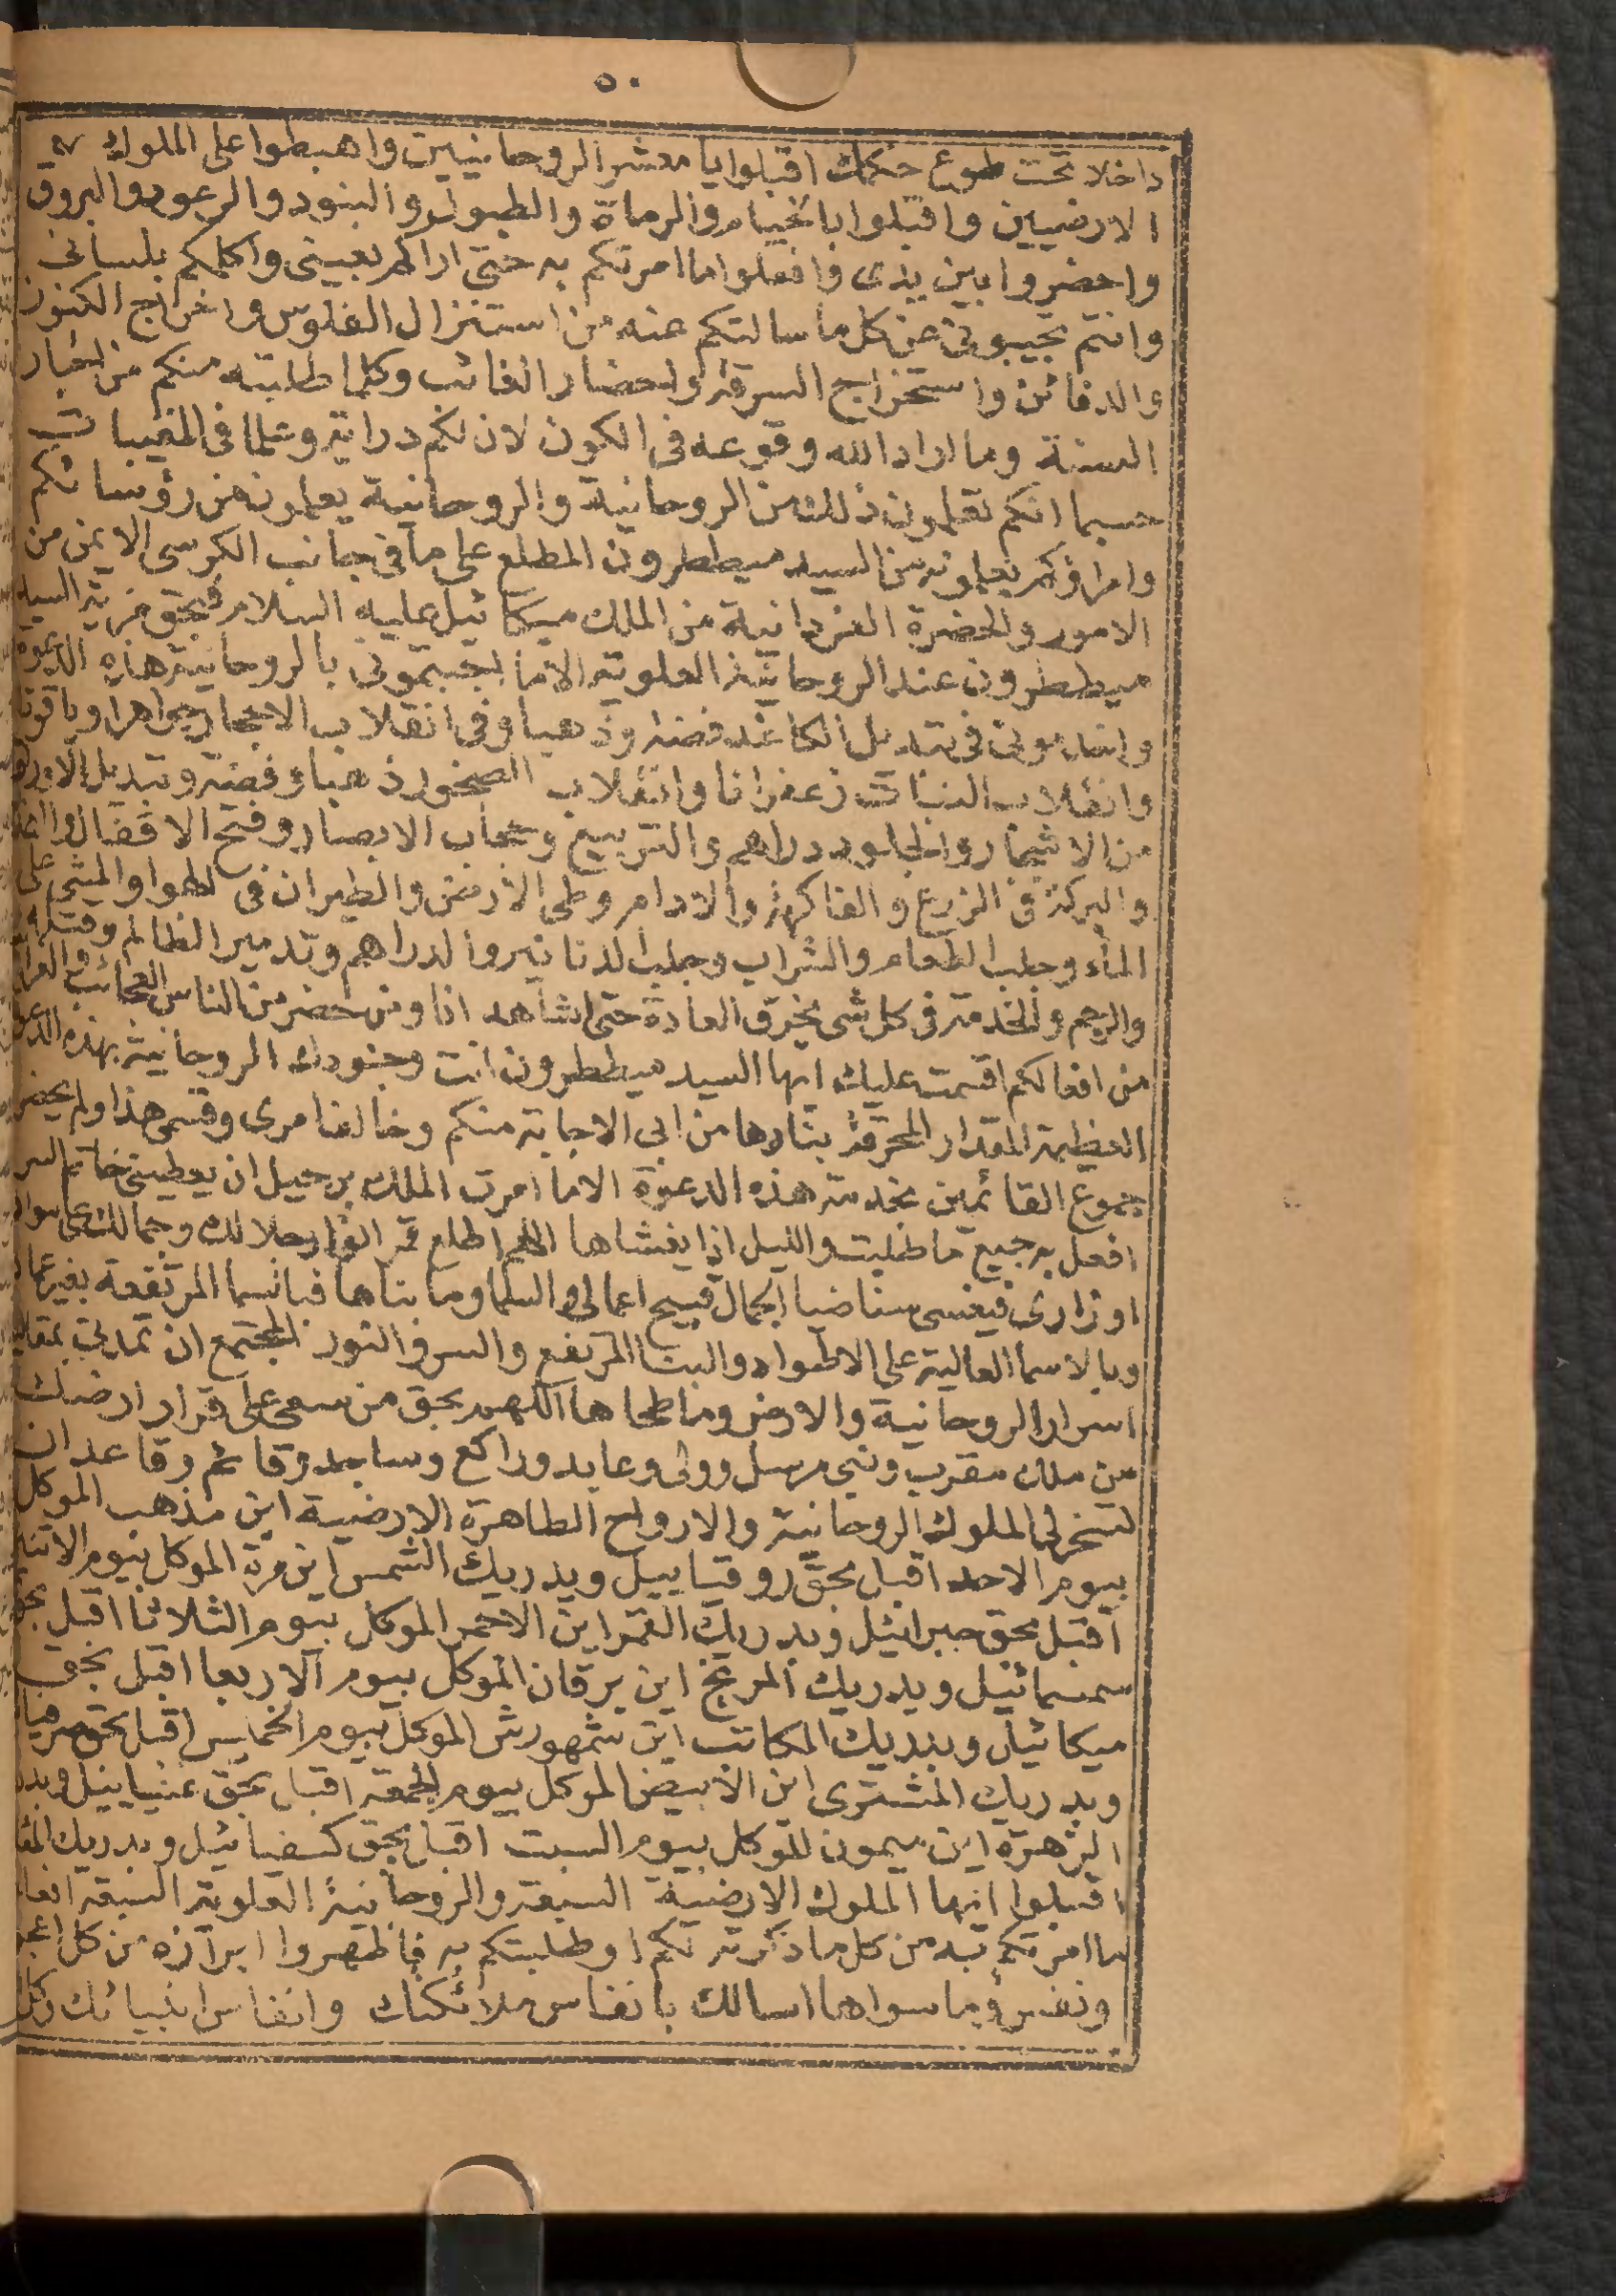 ٥٠
داخلا تحت طوع حكمك اقبلوا يا معشر الروحانيين واهبطوا على الملوك
الارضيين واقبلوا بالخيام والرماة والطبول والبنود والرعود والبروق
واحضروا بين يدى وافعلوا ما امرتكم به حتى اراكم بعينى واكلمكم بلسانى
وانتم تجيبونى عن كل ما سالتكم عنه من استنزال الفلوس واخراج الكنوز
والدفائن واستخراج السرقة واحضار الغائب وكلما طلبته منكم من اخبار
السنة وما اراد الله وقوعه فى الكون لان لكم دراية وعلما فى المغيبات
حسبما انكم تعلمون ذلك من الروحانية والروحانية يعلمونه من رؤسائكم
وامراؤكم يعلمونه من السيد ميططرون المطلع على ما فى جانب الكرسى الايمن من
الامور والحضرة الفردانية من الملك ميكائيل عليه السلام فبحق مزية السيد
ميططرون عند الروحانية العلوية الا ما اجبتمونى بالروحانية هذه الدعوة
وامددتمونى فى تبديل الكاغد فضة وذهبا وفى انقلاب الاحجار جواهرا وياقوتا
وانقلاب النبات زعفرانا وانقلاب الصخور ذهبا وفضة وتبديل الاوراق
من الاشجار والجلود دراهم والتربيع وحجاب الابصار وفتح الاقفال
والبركة فى الزرع والفاكهة والادام وطى الارض والطيران فى الهوا والمشى على
الماء وجلب الطعام والشراب وجلب الدنانير والدراهم وتدمير الظالم وقتله
والرجم والخدمة فى كل شى يخرق العادة حتى اشاهد انا ومن حضر من الناس العجائب
من افعالكم اقسمت عليك ايها السيد ميططرون انت وجنودك الروحانية بهذه
العظيمة المقدار المحرقة بنارها من ابى الاجابة منكم وخالف امرى وقسمى هذا ولم يحضر
جموع القائمين بخدمة هذه الدعوة الا ما امرت الملك برحيل ان يعطينى خاتم
افعل به جميع ما طلبت والليل اذا يغشاها اللهم اطلع قمر انوار جلالك وجمالك على
اوزارى فيغسى سنا ضيا الجمال قبيح اعمالى والسما وما بناها فبالسما المرتفعة بغير
وبالاسما العالية على الاطواد والبنا المرتفع والسر والنور المجتمع ان تمدنى
اسرار الروحانية والارض وما طحاها اللهم بحق من سعى على قرار ارضك
من ملك مقرب ونبى مرسل وولى وعابد وراكع وساجد وقائم وقاعد ان
تسخر لى الملوك الروحانية والارواح الطاهرة الارضية اين مذهب الموكل
بيوم الاحد اقبل بحق روقيائيل وبدريك الشمس اين مرة الموكل بيوم
اقبل بحق جبرائيل وبدريك القمر اين الاحمر الموكل بيوم الثلاثا اقبل بحق
سمسمائيل وبدريك المريخ اين برقان الموكل بيوم الاربعا اقبل بحق
ميكائيل وبدريك الكاتب اين شمهورش الموكل بيوم الخميس اقبل بحق
وبدريك المشترى اين الابيض الموكل بيوم الجمعة اقبل بحق عنيائيل
الزهرة اين ميمون الموكل بيوم السبت اقبل بحق كسفيائيل وبدريك
اقبلوا ايها الملوك الارضية السبعة والروحانية العلوية السبعة
ما امرتكم به من كل ما ذكرته لكم او طلبتكم به فاظهروا ابرازه من كل
ونفس وما سواها اسالك بانفاس ملائكتك وانفاس انبيائك